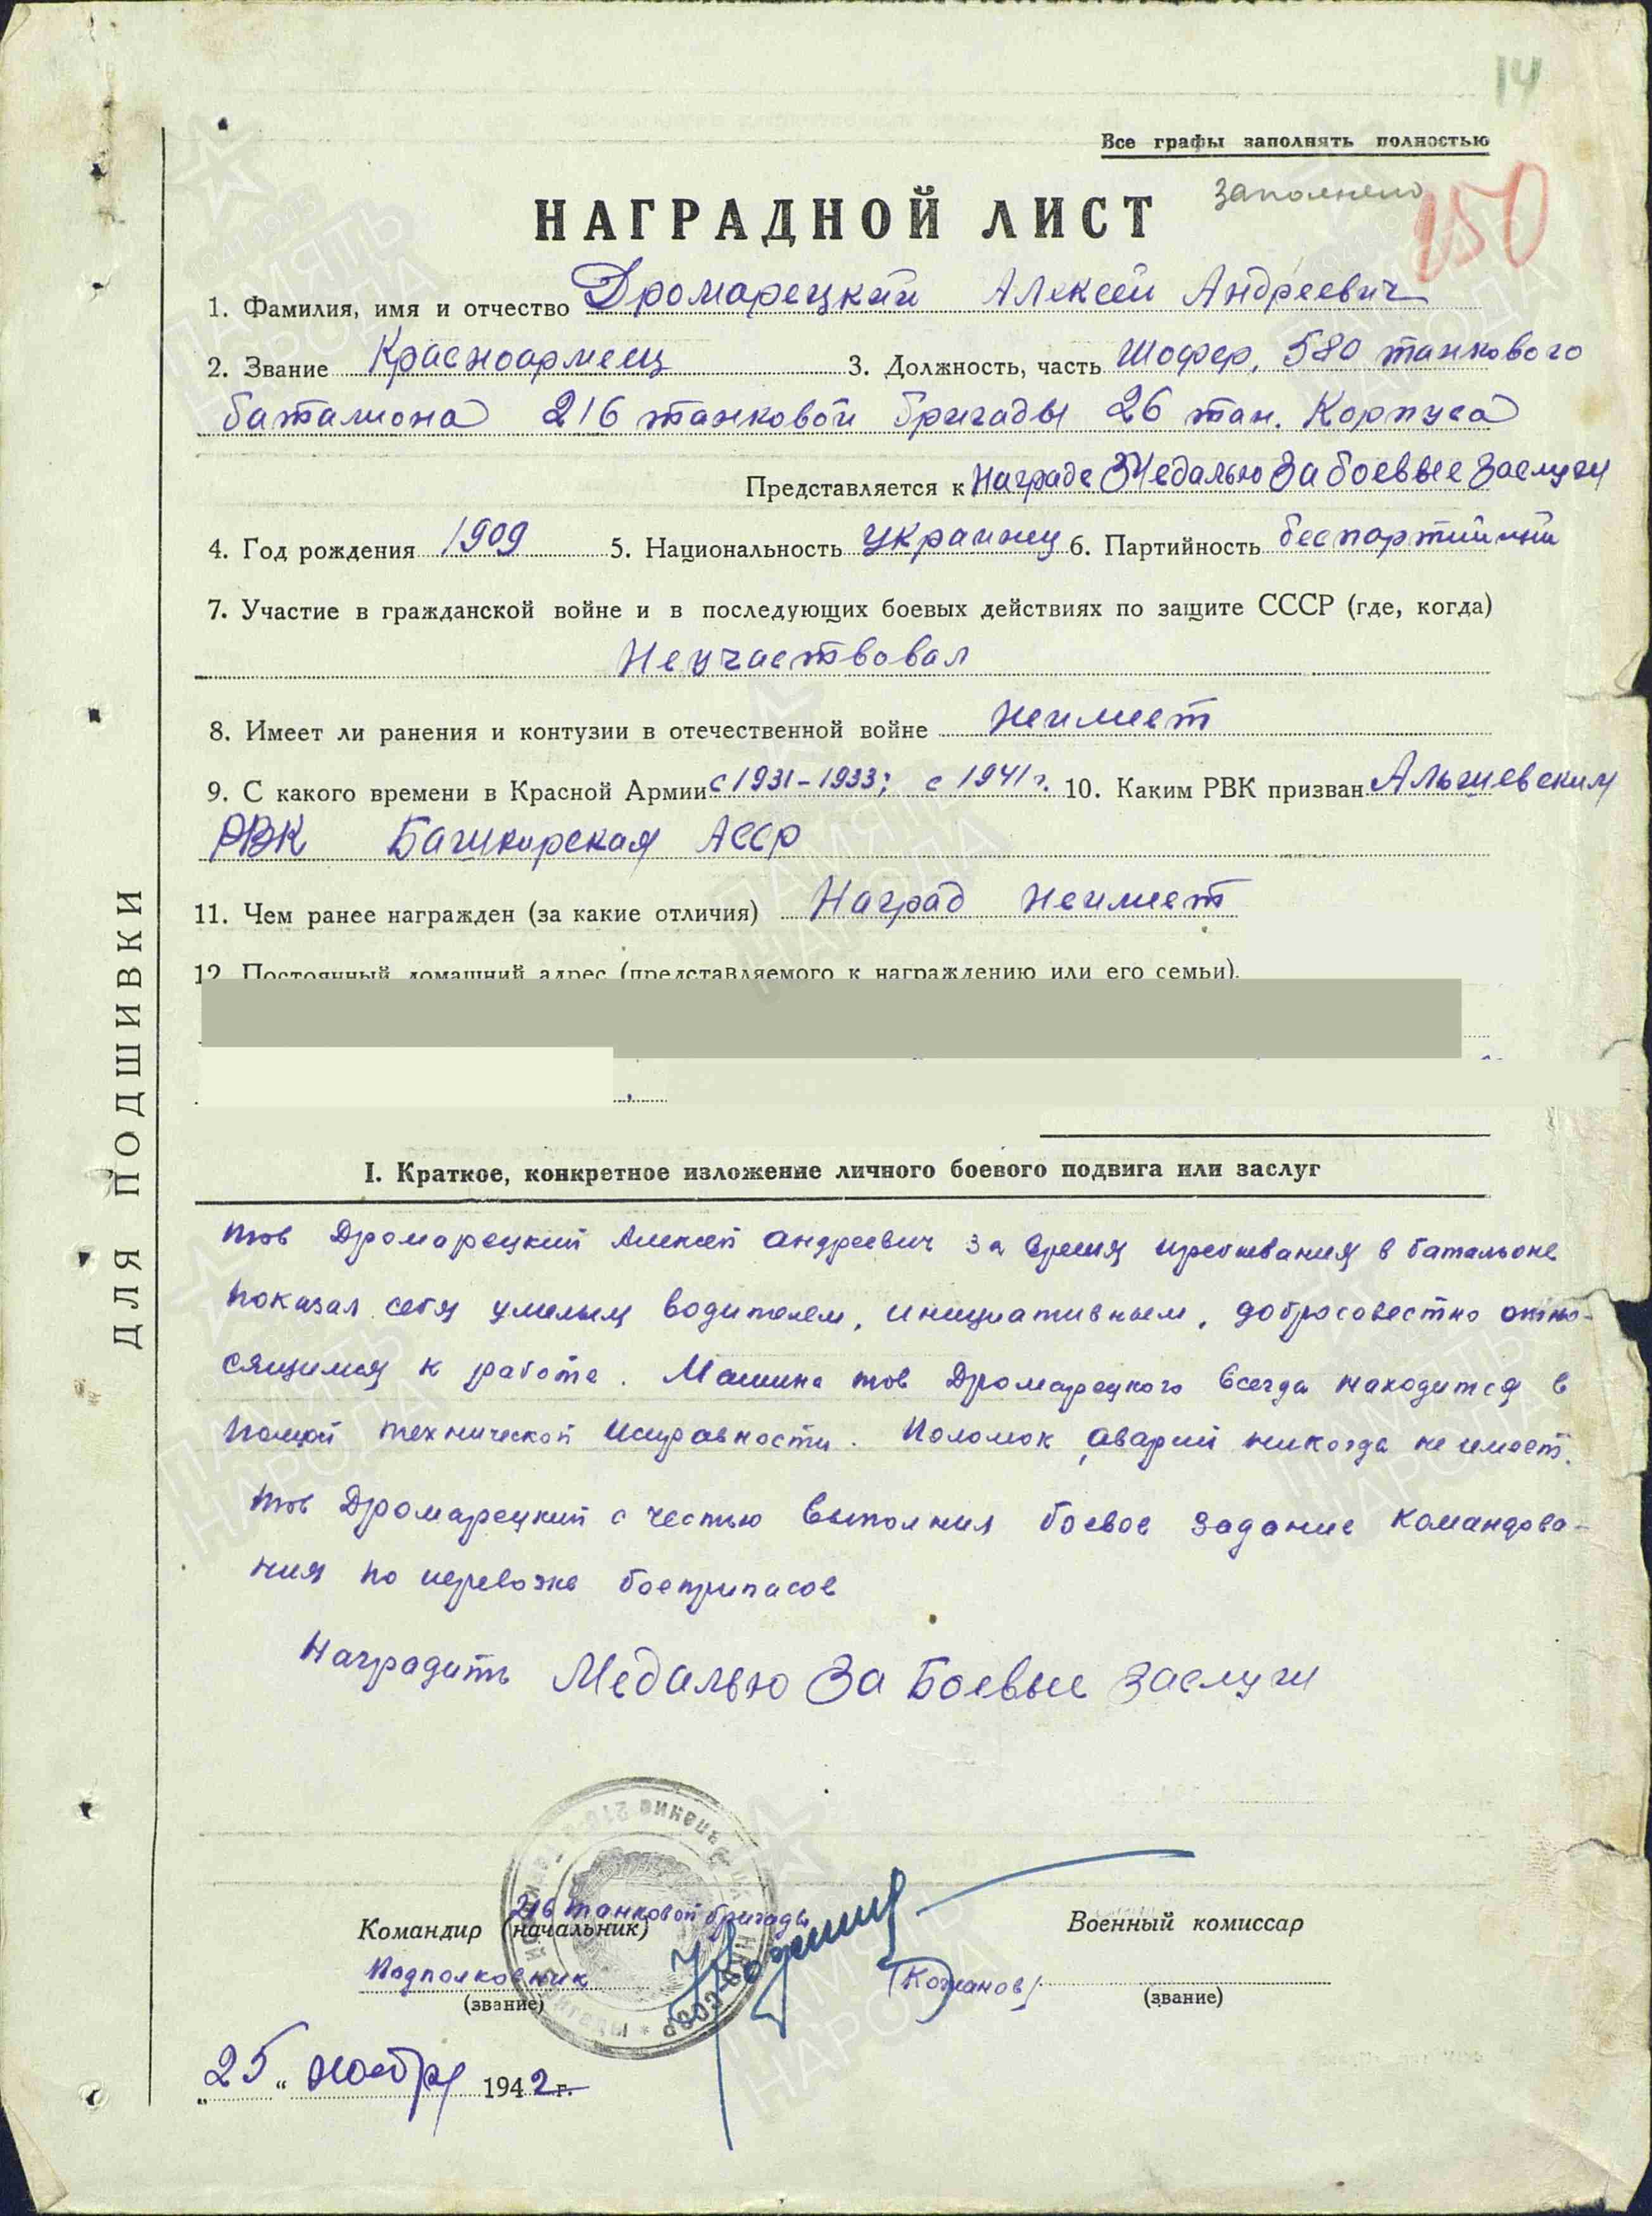 14
Все графы заполнять полностью
заполнено
150
НАГРАДНОЙ ЛИСТ
1. Фамилия, имя и отчество Дромарецкий Алексей Андреевич
2. Звание Красноармеец 3. Должность, часть Шофер, 580 танкового
баталиона 216 танковой бригады 26 тан. Корпуса
Представляется к Награде Медалью За боевые Заслуги
4. Год рождения 1909 5. Национальность украинец 6. Партийность беспартийный
7. Участие в гражданской войне и в последующих боевых действиях по защите СССР (где, когда)
Неучаствовал
8. Имеет ли ранения и контузии в отечественной войне неимеет
9. С какого времени в Красной Армии с 1931-1933; с 1941 г. 10. Каким РВК призван Альшевским
РВК Башкирская АССР
11. Чем ранее награжден (за какие отличия) Наград неимеет
12. Постоянный домашний адрес (представляемого к награждению или его семьи)
ДЛЯ ПОДШИВКИ
I. Краткое, конкретное изложение личного боевого подвига или заслуг
тов Дромарецкий Алексей Андреевич за время пребывания в батальоне
показал себя умелым водителем, инициативным, добросовестно отно-
сящимся к работе. Машина тов Дромарецкого всегда находится в
полной технической исправности. Поломок, аварий никогда не имеет.
тов Дромарецкий с честью выполнил боевое задание командова-
ния по перевозке боеприпасов
Наградить Медалью За Боевые Заслуги
216 танковой бригады
Командир (начальник)
Военный комиссар
Подполковник
(Кожанов)
(звание)
(звание)
„25“ ноября 1942 г.
ПАМЯТЬ
НАРОДА